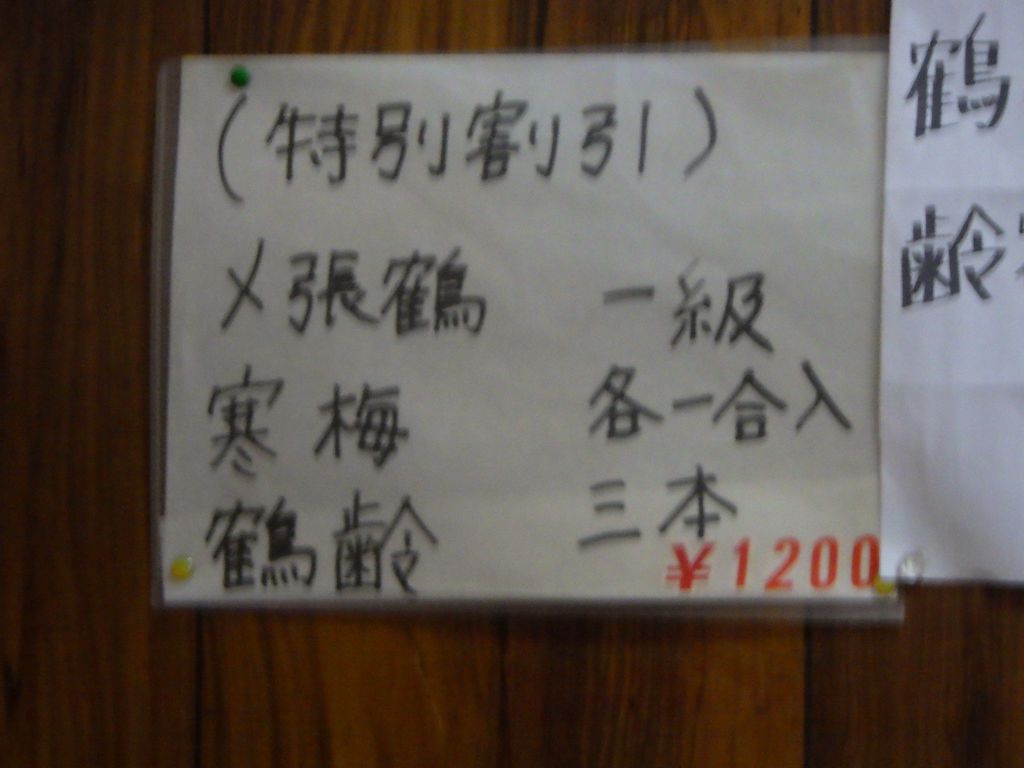 (特別割引)
〆張鶴 一級
寒梅 各一合入
鶴齢 三本
¥1200
鶴
齢